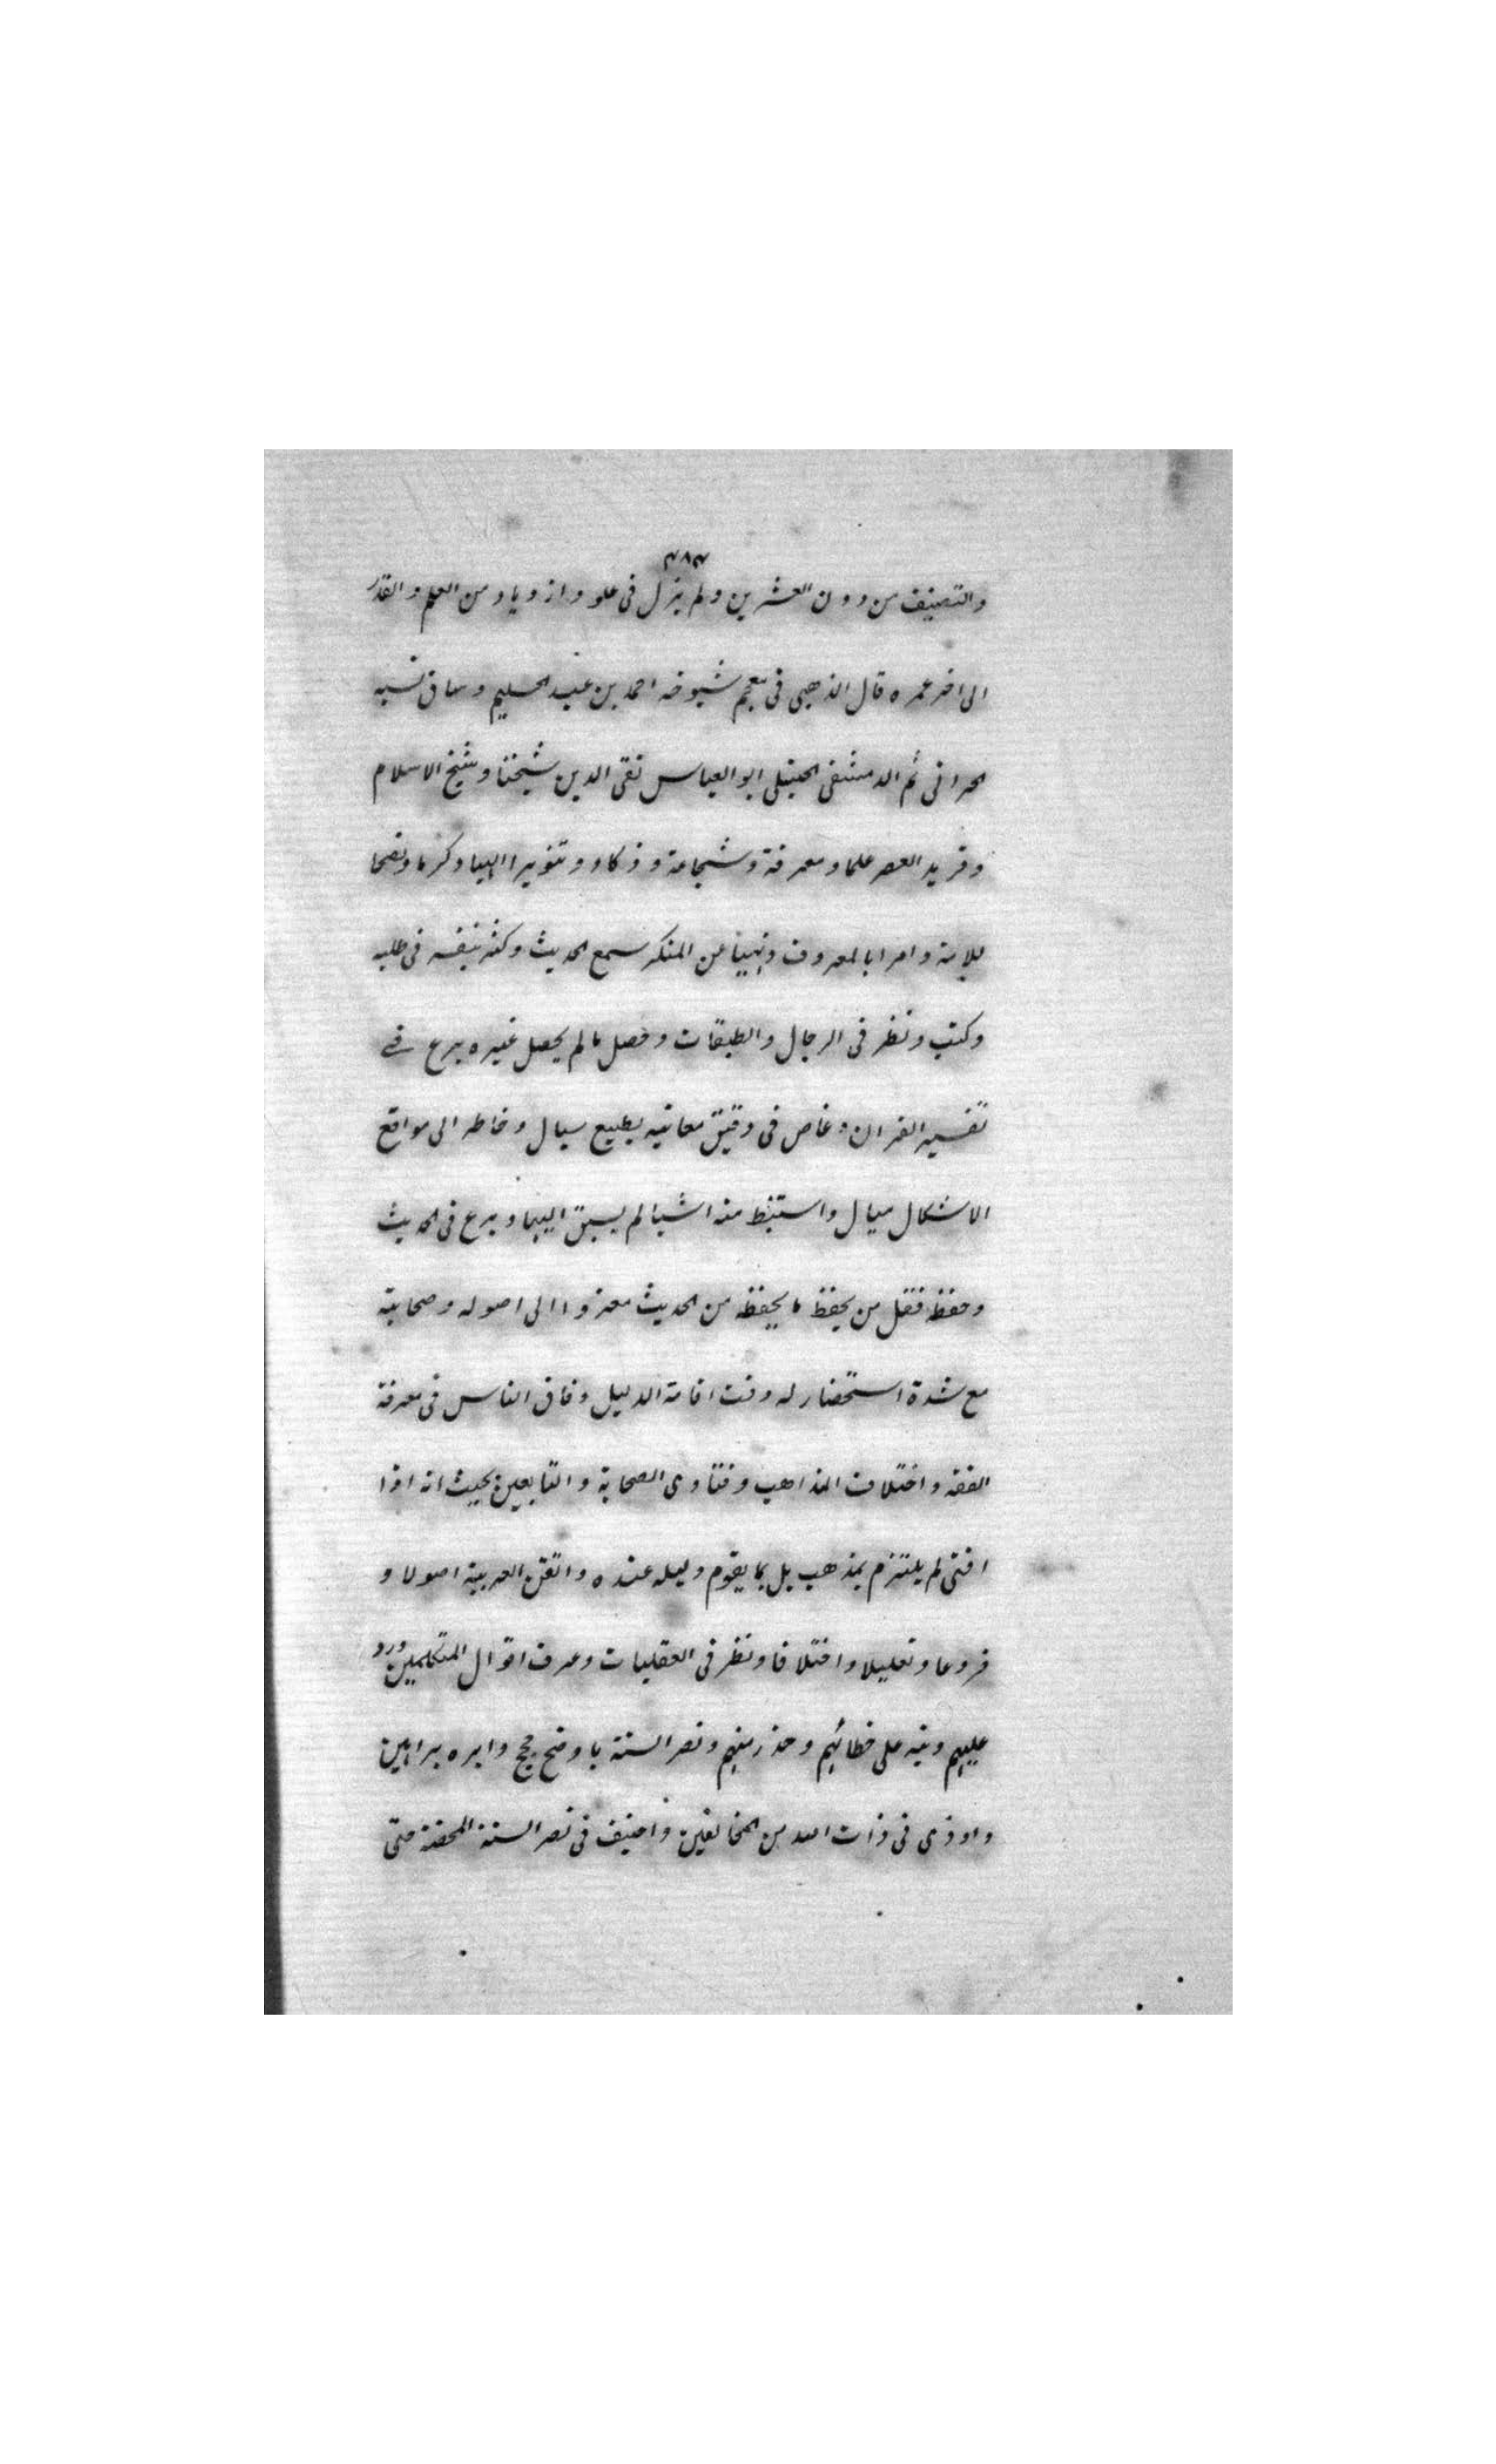 ٣٨٣
والتصنيف من دون العشرين ولم يزل فى علو وازدياد من العلم والقدر
الى اخر عمره قال الذهبى فى معجم شيوخه احمد بن عبد الحليم وساق نسبه
الحرانى ثم الدمشقى الحنبلى ابو العباس تقى الدين شيخنا وشيخ الاسلام
وفريد العصر علما ومعرفة وشجاعة وذكاء وتنويرا الهيا وكرما ونصحا
للامة وامرا بالمعروف ونهيا عن المنكر سمع الحديث وكثر بنفسه فى طلبه
وكتب ونظر فى الرجال والطبقات وحصل ما لم يحصل غيره برع فے
تفسير القران وغاص فى دقيق معانيه بطبيع سيال وخاطر الى مواقع
الاشكال ميال واستنبط منه اشيا لم يسبق اليها وبرع فى الحديث
وحفظه فقل من يحفظ ما يحفظه من الحديث معزوا الى اصوله وصحابته
مع شدة استحضار له وقت اقامة الدليل وفاق الناس فى معرفة
الفقه واختلاف المذاهب وفتاوى الصحابة والتابعين بحيث انه اذا
افتى لم يلتزم بمذهب بل بما يقوم دليله عنده واتقن العربية اصولا و
فروعا وتعليلا واختلافا ونظر فى العقليات وعرف اقوال المتكلمين ورد
عليهم ونبه على خطائهم وحذر منهم ونصر السنة باوضح حجج وابره براهين
واوذى فى ذات الله من المخالفين واخيف فى نصر السنة المحضة حتى